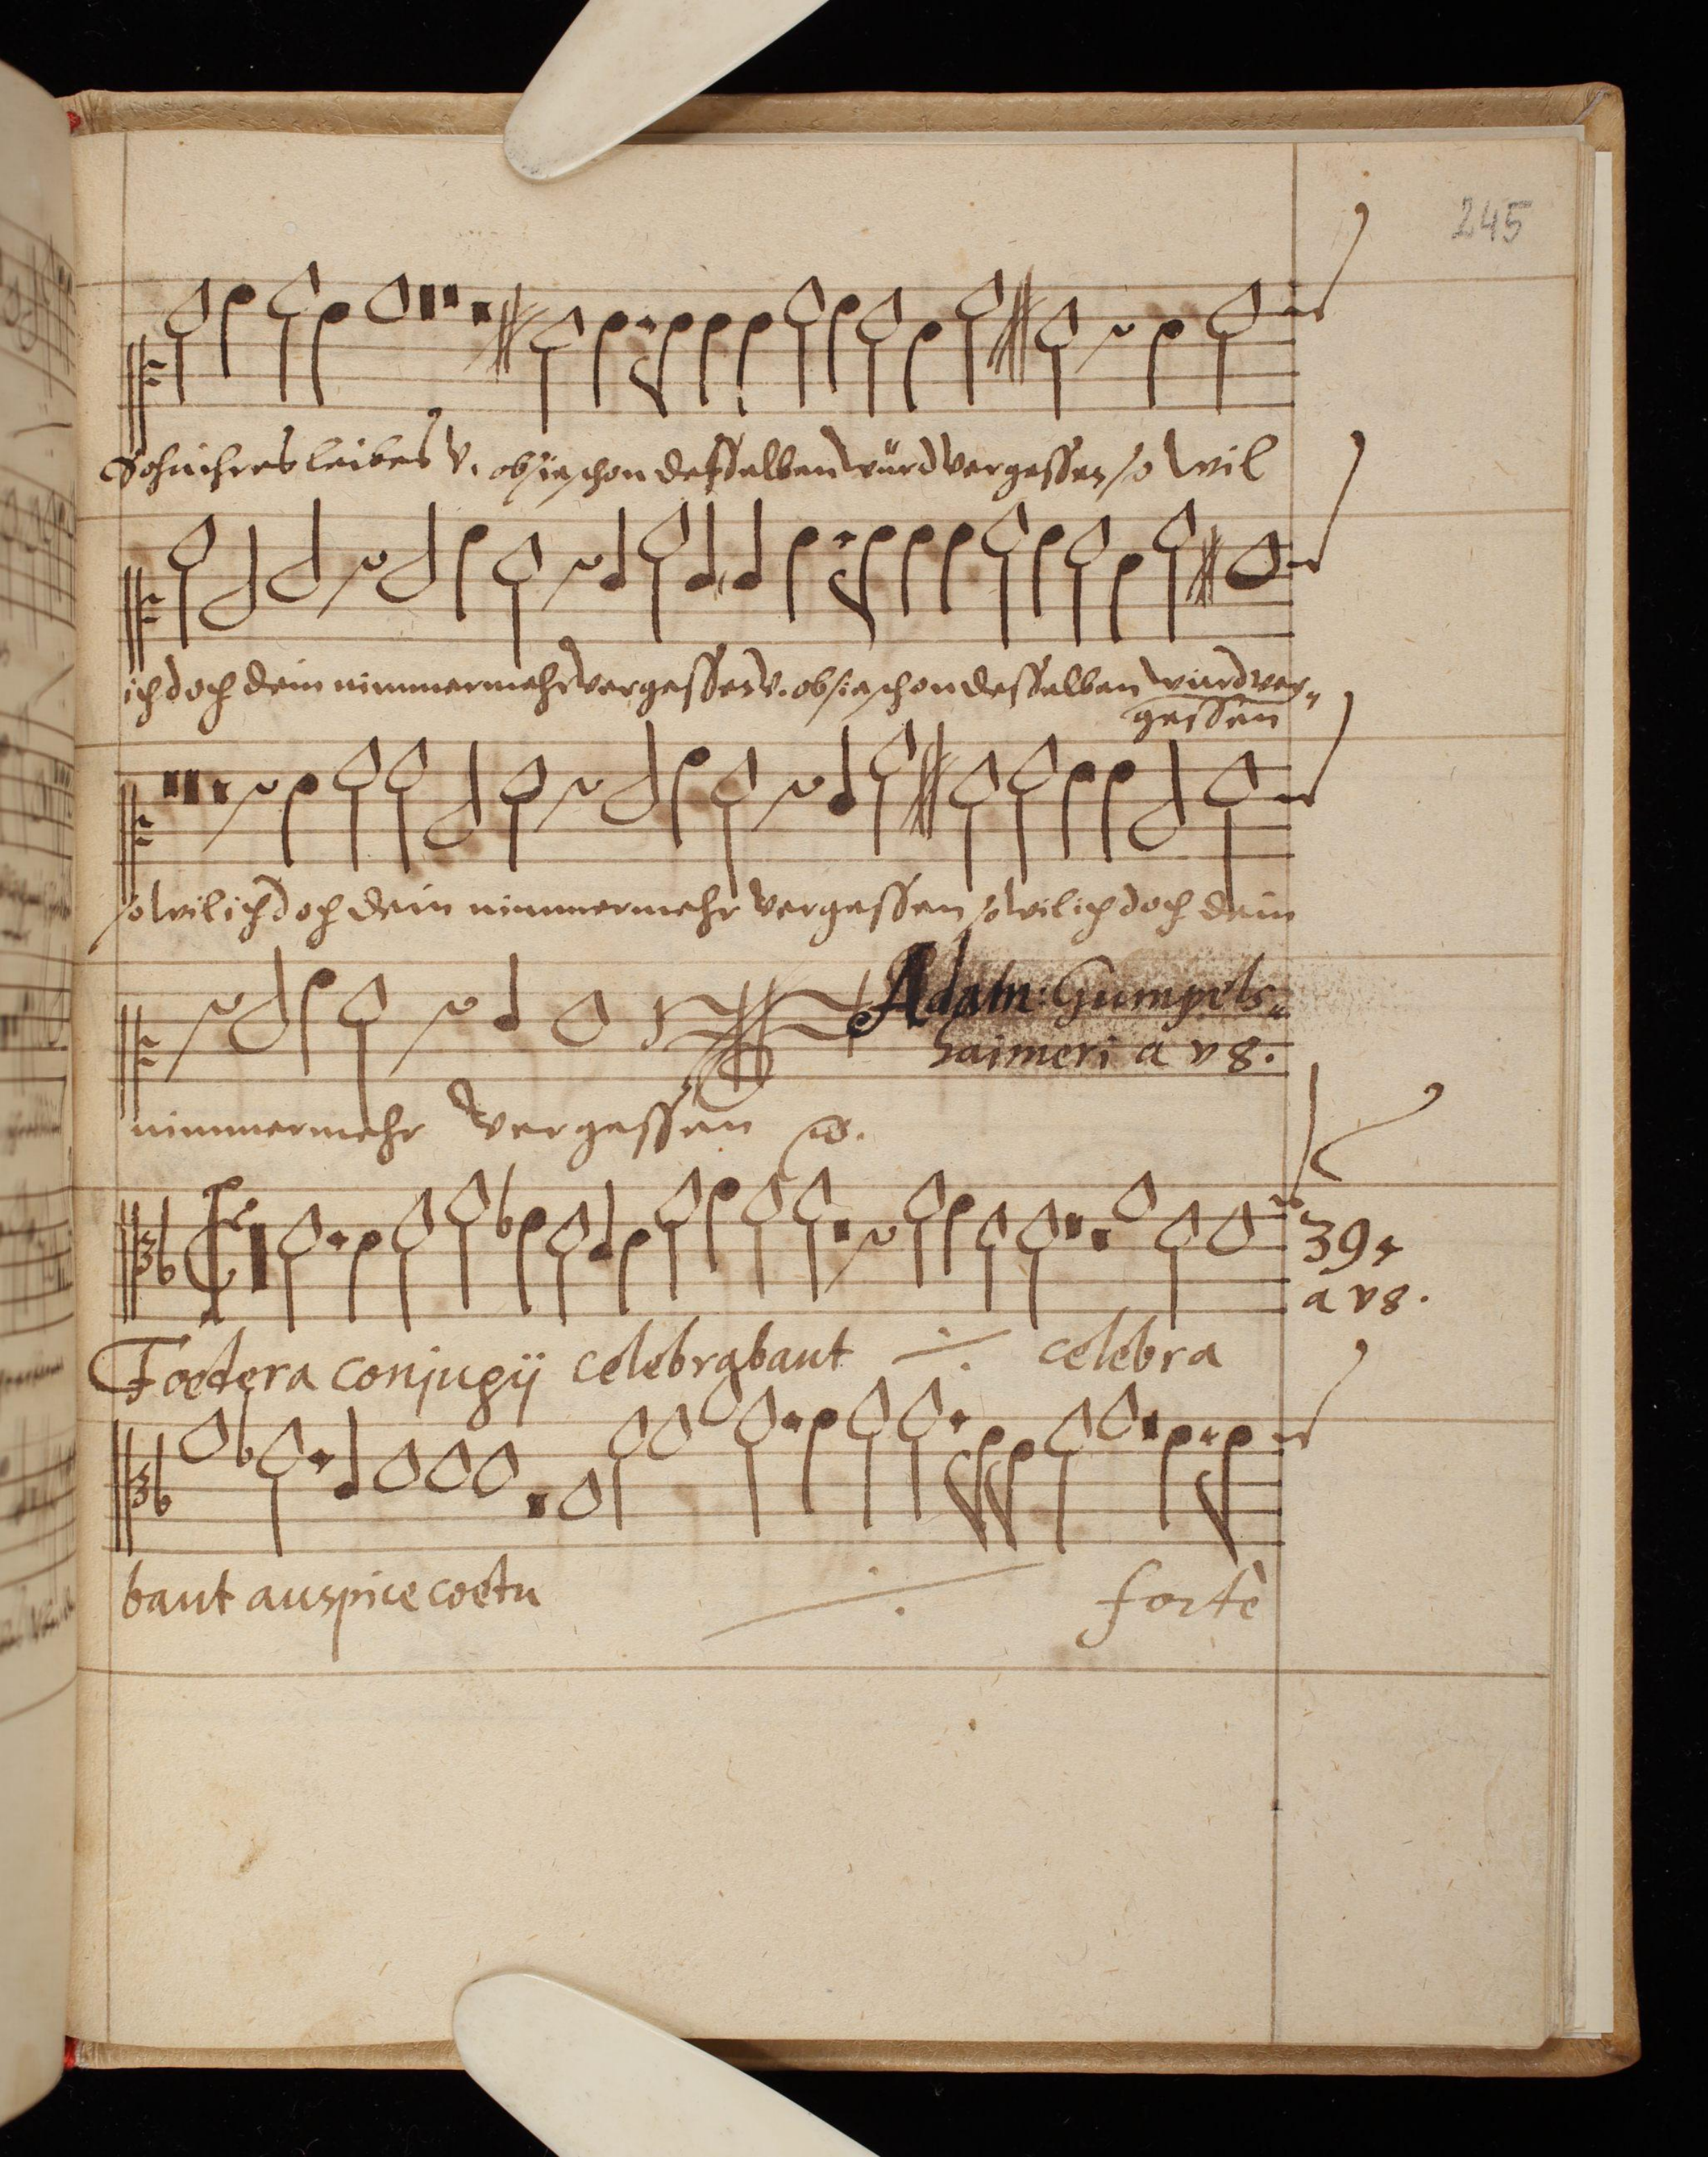 245
Sohn ihres leibes v. ob sie schon desselben würd vergessen so wil
ich doch dein nimmermehr vergessen v. ob sie schon desselben würd ver-
gessen
so wil ich doch dein nimmermehr vergessen so wil ich doch dein
Adam: Gumpels-
haimeri a v8.
nimmermehr vergessen
39
a v8.
Foedera conjugij celebrabant ÷ celebra
bant auspice coetu ÷ fortè